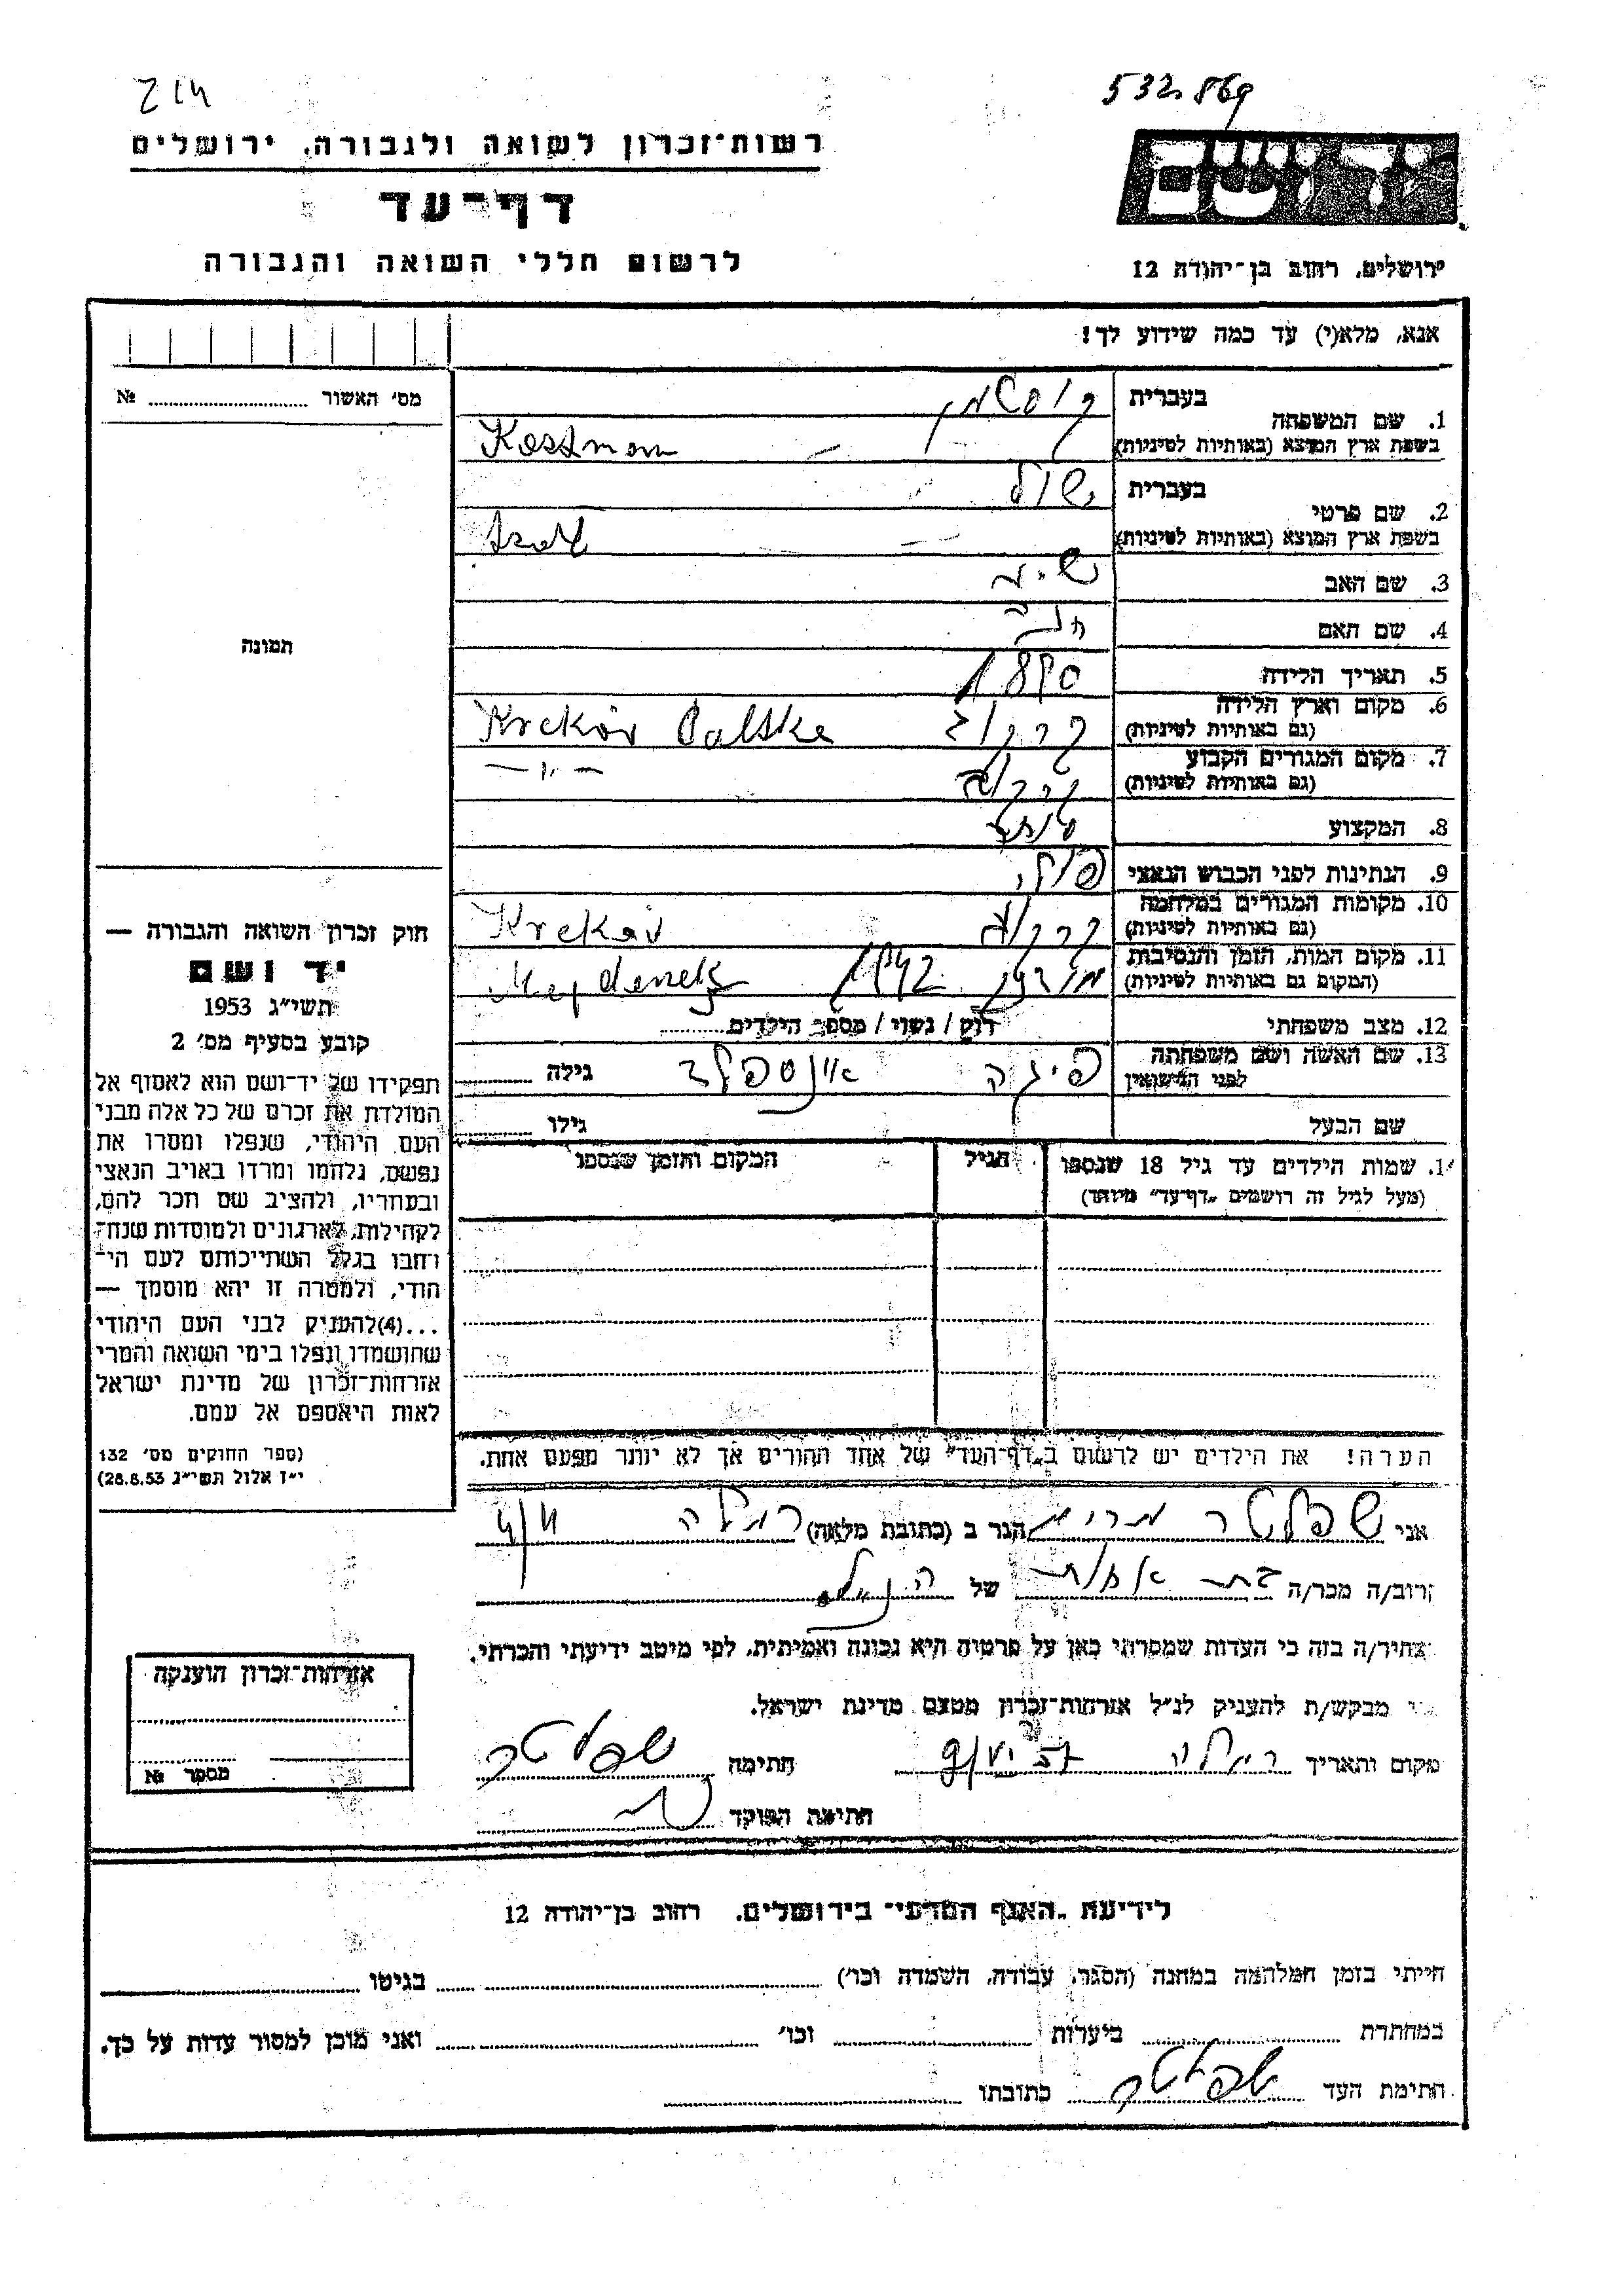 532.869
214
רשות־זכרון לשואה ולגבורה, ירושלים
דף־עד
לרשום חללי השואה והגבורה
יד ושם
ירושלים, רחוב בן־יהודה 12
אנא, מלא(י) עד כמה שידוע לך!
מס׳ האשור № ........
1. שם המשפחה
בעברית
בשפת ארץ המוצא (באותיות לטיניות)
Kossman
2. שם פרטי
בעברית
בשפת ארץ המוצא (באותיות לטיניות)
3. שם האב
4. שם האם
5. תאריך הלידה 1890
6. מקום וארץ הלידה
(גם באותיות לטיניות)
קרקוב Krekov Polske
7. מקום המגורים הקבוע
(גם באותיות לטיניות)
קרקוב — " —
8. המקצוע
9. הנתינות לפני הכבוש הנאצי
10. מקומות המגורים במלחמה
(גם באותיות לטיניות)
קרקוב Krekov
11. מקום המות, הזמן והנסיבות
(המקום גם באותיות לטיניות)
1942 Majdenek
12. מצב משפחתי רוק / נשוי / מספר הילדים ........
13. שם האשה ושם משפחתה
לפני הנישואין
פיגה גילה ........
שם הבעל גילו ........
תמונה
חוק זכרון השואה והגבורה —
יד ושם
תשי״ג 1953
קובע בסעיף מס׳ 2
תפקידו של יד־ושם הוא לאסוף אל
המולדת את זכרם של כל אלה מבני
העם היהודי, שנפלו ומסרו את
נפשם, נלחמו ומרדו באויב הנאצי
ובעוזריו, ולהציב שם וזכר להם,
לקהילות, לארגונים ולמוסדות שנח־
רחבו בגלל השתייכותם לעם הי־
הודי, ולמטרה זו יהא מוסמך —
...(4)להעניק לבני העם היהודי
שהושמדו ונפלו בימי השואה והמרי
אזרחות־זכרון של מדינת ישראל
לאות היאספם אל עמם.
(ספר החוקים מס׳ 132
י״ז אלול תשי״ג 28.8.53)
1. שמות הילדים עד גיל 18 שנספו
(מעל לגיל זה רושמים „דף־עד״ מיוחד)
הגיל
המקום והזמן שנספו
הערה! את הילדים יש לרשום ב„דף־העד״ של אחד ההורים אך לא יותר מפעם אחת.
אני שפלטר מרים הגר ב (כתובת מלאה) רמלה
רוב/ה מכר/ה בת אחות של הנ״ל
צהיר/ה בזה כי העדות שמסרתי כאן על פרטיה היא נכונה ואמיתית, לפי מיטב ידיעתי והכרתי.
מבקש/ת להעניק לנ״ל אזרחות־זכרון מטעם מדינת ישראל.
מקום ותאריך רמלה חתימה שפלטר
חתימת הפוקד
אזרחות־זכרון הוענקה
מספר №
לידיעת „האגף המדעי״ בירושלים. רחוב בן־יהודה 12
הייתי בזמן המלחמה במחנה (הסגר, עבודה, השמדה וכו׳) ........ בגיטו ........
במחתרת ........ ביערות ........ וכו׳ ........ ואני מוכן למסור עדות על כך.
חתימת העד שפלטר כתובתו ........